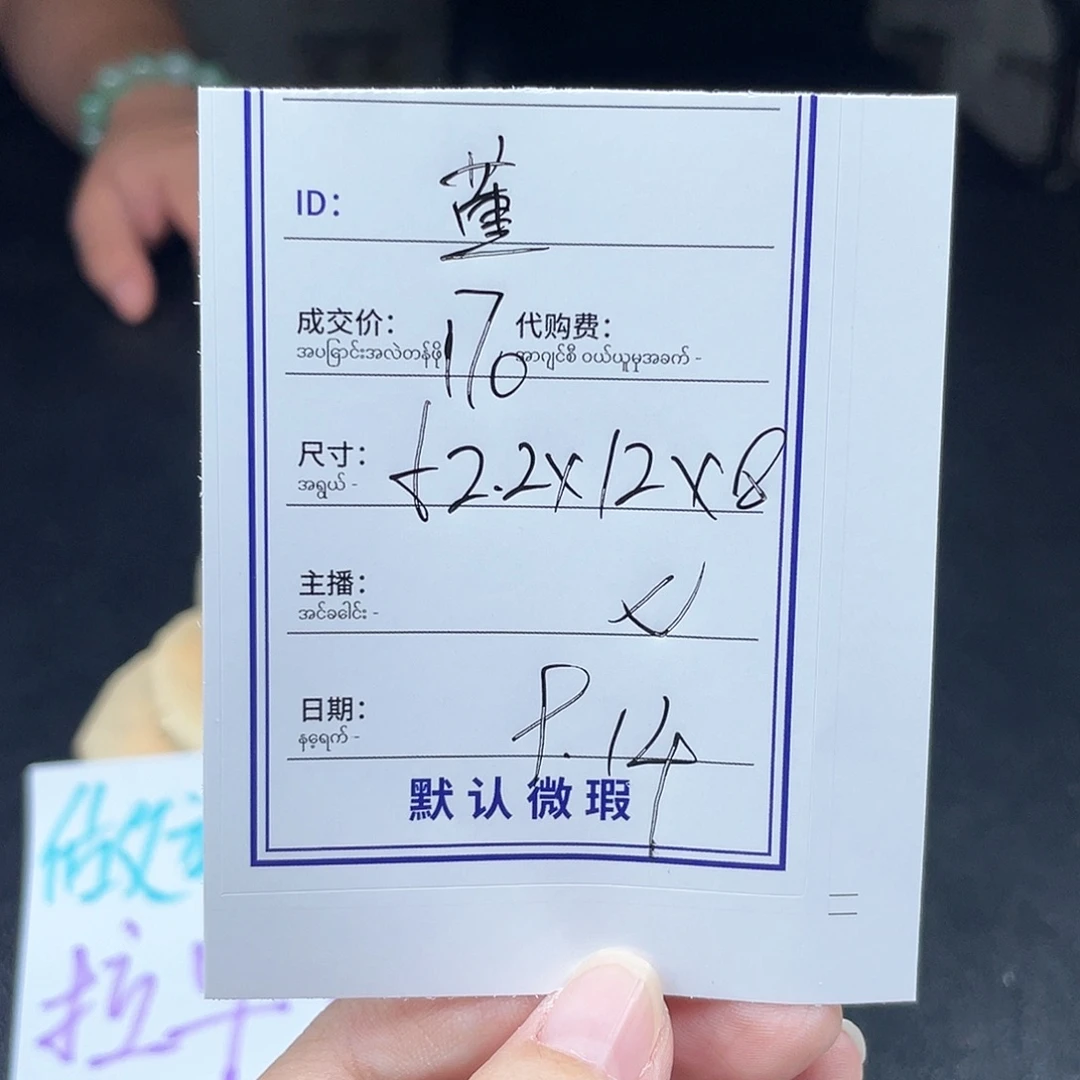 ID: 薑
成交价: 170 代购费:
အပြောင်းအလဲတန်ဖိုး အာဂျင်စီ ဝယ်ယူမှုအခက် -
尺寸: 62.2x12x8
အရွယ် -
主播:
အင်ခေါင်း -
日期: 9.14
နေ့ရက် -
默认微瑕
做
拉